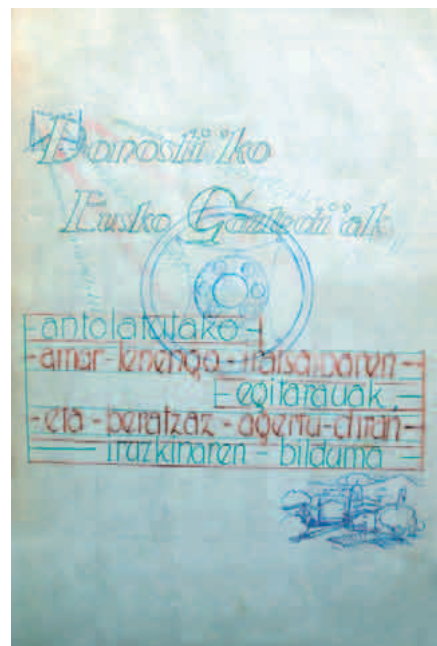 Donosti'ko
Eusko Gaztedi'ak
antolatutako
- amar - lenengo - irratsaioaren -
- egitarauak -
- eta - beratzaz - agertu - diran -
iruzkinaren - bilduma